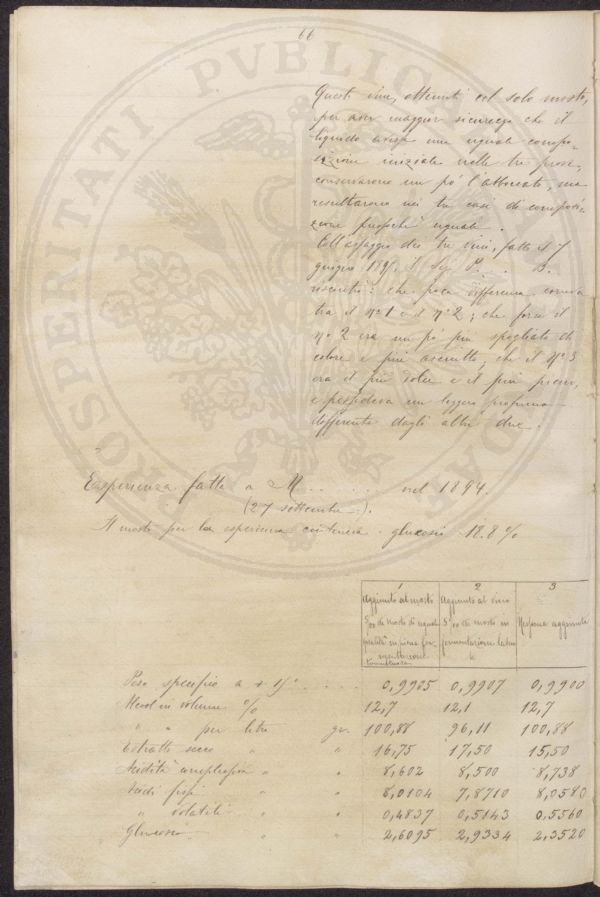 66
Questi vini, ottenuti col solo mosto,
per aver maggior sicurezza che il
liquido avesse una eguale compo-
sizione iniziale nelle tre prove,
conservarono un pó l'abboccato, ma
resultarono nei tre casi di composi-
zione pressochè uguale.
Coll'assaggio dei tre vini, fatto il 7
giugno 189 il Sig. P. . . B.
riscontrò: che poca differenza correva
tra il nº 1 e il nº 2; che forse il
nº 2 era un pó più spogliato di
colore e più asciutto, che il nº 3
era il più dolce e il più pieno,
e possedeva un leggero profumo
differente dagli altri due.
Esperienza fatta a M. . . . . . nel 1894.
(27 settembre).
Il mosto per la esperienza conteneva glucosio 18.8%
1 2 3
Aggiunto al mosto Aggiunto al vino
5% di mosto di egual 5% di mosto in Nessuna aggiunta
qualità in piena fer- fermentazione
mentazione
Peso specifico a + 15º . . . . . 0,9905 0,9907 0,9900
Alcool in volume % 12,7 12,1 12,7
" " per litro gr. 100,88 96,11 100,88
Estratto secco " " 16,75 17,50 15,50
Acidità complessiva " " 8,602 8,500 8,738
Acidi fissi " " 8,0104 7,8710 8,0580
" volatili " " 0,4837 0,5143 0,5560
Glucosio " " 2,6095 2,9334 2,3520
PROSPERITATI PVBLICAE